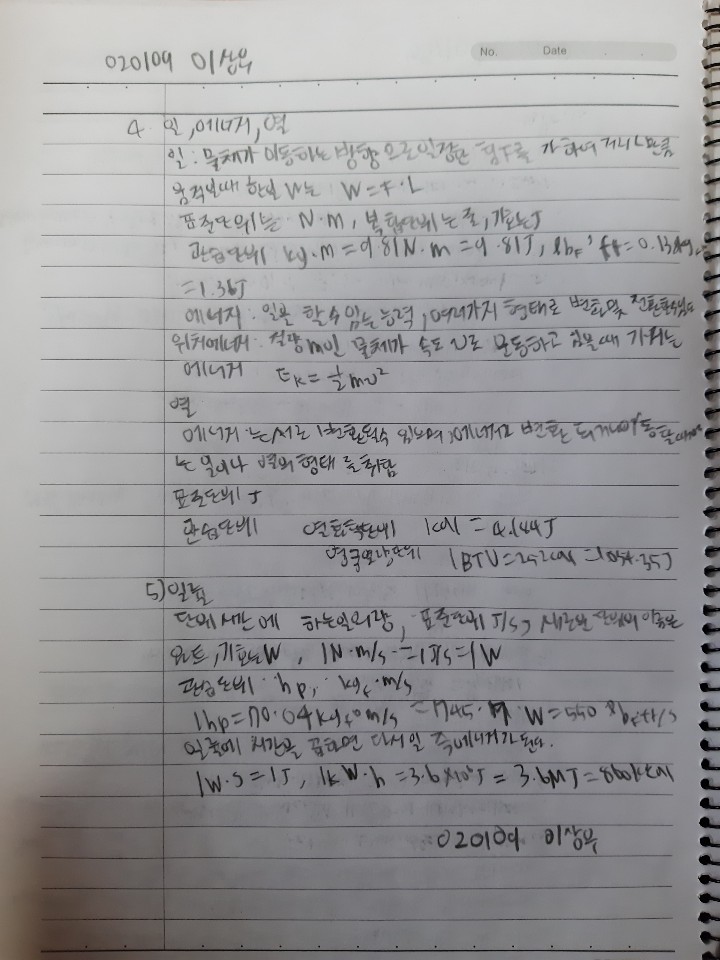 020109 이상욱
No. Date
4 일, 에너지, 열
일 : 물체가 이동하는 방향으로 일정한 힘F를 가하여 거리L만큼
움직일때 한일 W는 W=F·L
표준단위는 N·m, 복합단위는 줄, 기호는J
관습단위 kg·m=9.81N·m=9.81J, lbf·ft=0.138kg
=1.36J
에너지 : 일을 할수있는 능력, 여러가지 형태로 변화및 전환할수있다
위치에너지 : 질량m인 물체가 속도 v로 운동하고 있을때 가지는
에너지 Ek=½mv²
열
에너지는 서로 변환될수 있으며, 에너지가 변환되거나 이동될때
는 일이나 열의 형태를 취함
표준단위 J
관습단위 열화학단위 1cal = 4.144J
영국열량단위 1BTU=252cal=1054.35J
5) 일률
단위시간에 하는일의량, 표준단위 J/s, 새로운 단위의 이름은
와트, 기호는W, 1N·m/s=1J/s=1W
관습단위 hp, kgf·m/s
1hp=70.04kgf·m/s =745.7 W=550 lbf·ft/s
일률에 시간을 곱하면 다시 일 즉 에너지가 된다.
1W·s=1J, 1kW·h=3.6×10⁶J = 3.6MJ=860kcal
020109 이상욱